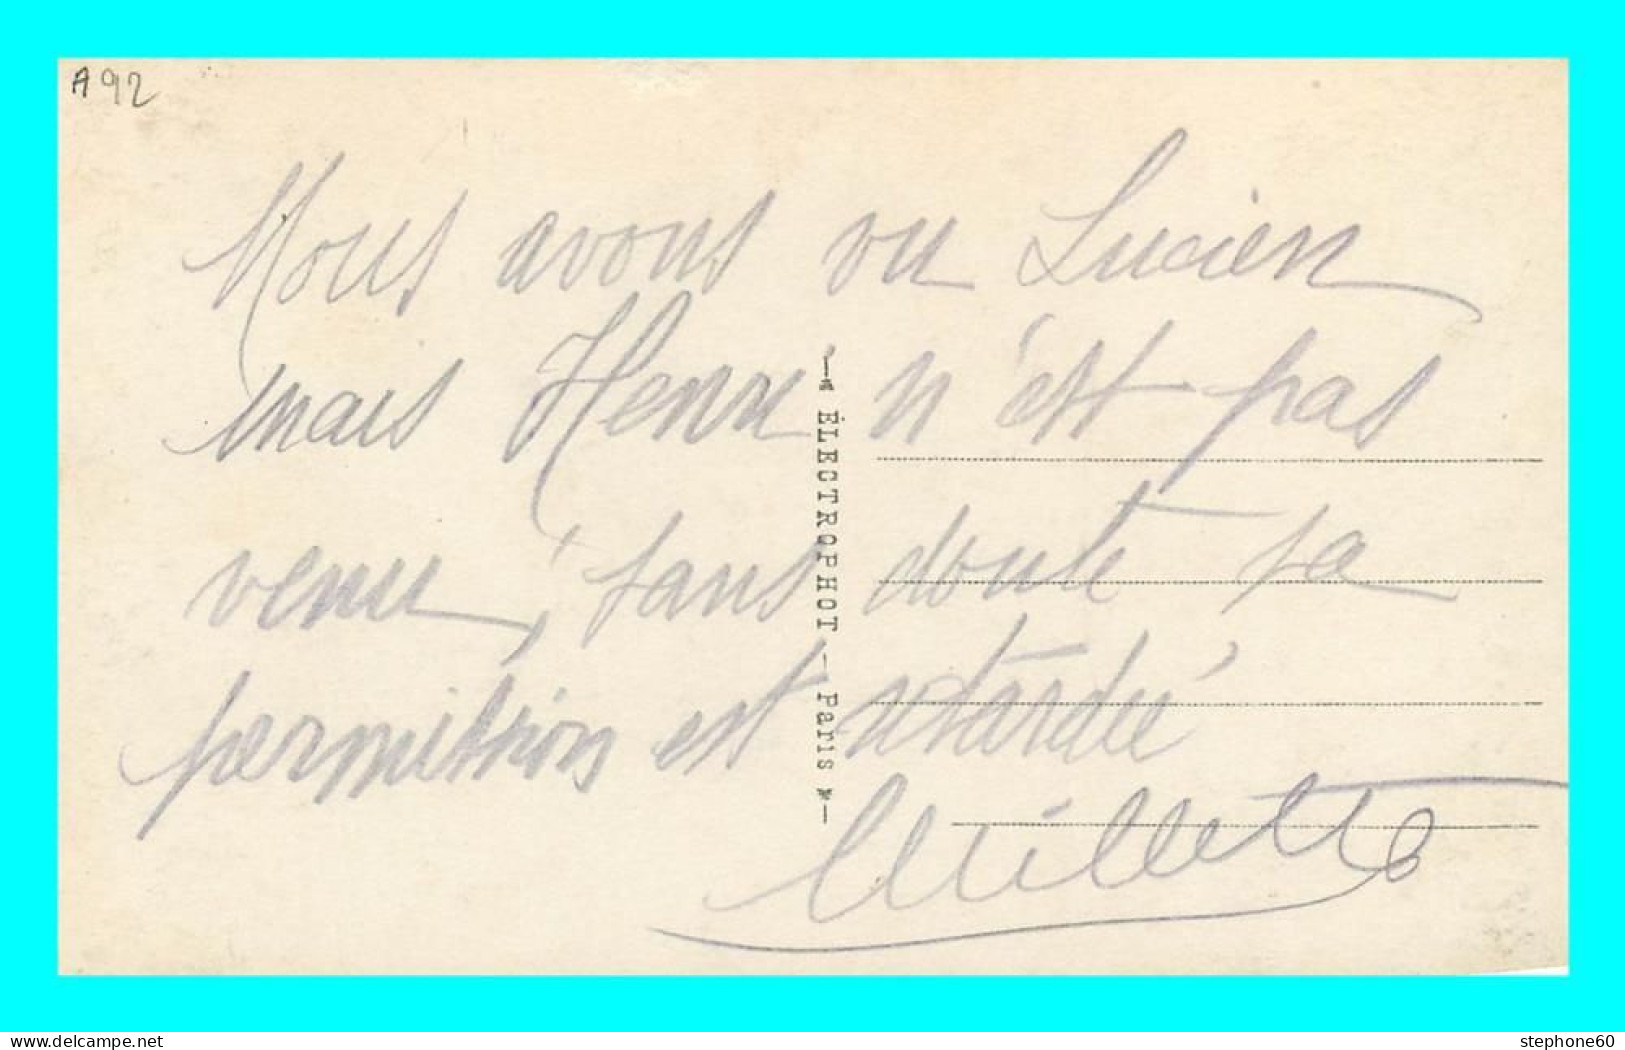 A92
Nous avons vu Lucien
mais Henri n'est pas
venu, sans doute sa
permission est retardée
ÉLECTROPHOT - Paris
delcampe.net
stephone60